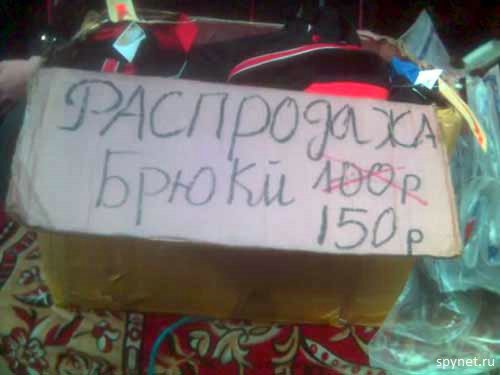 РАСПРОДАЖА
БРЮКИ 100р
150р
spynet.ru